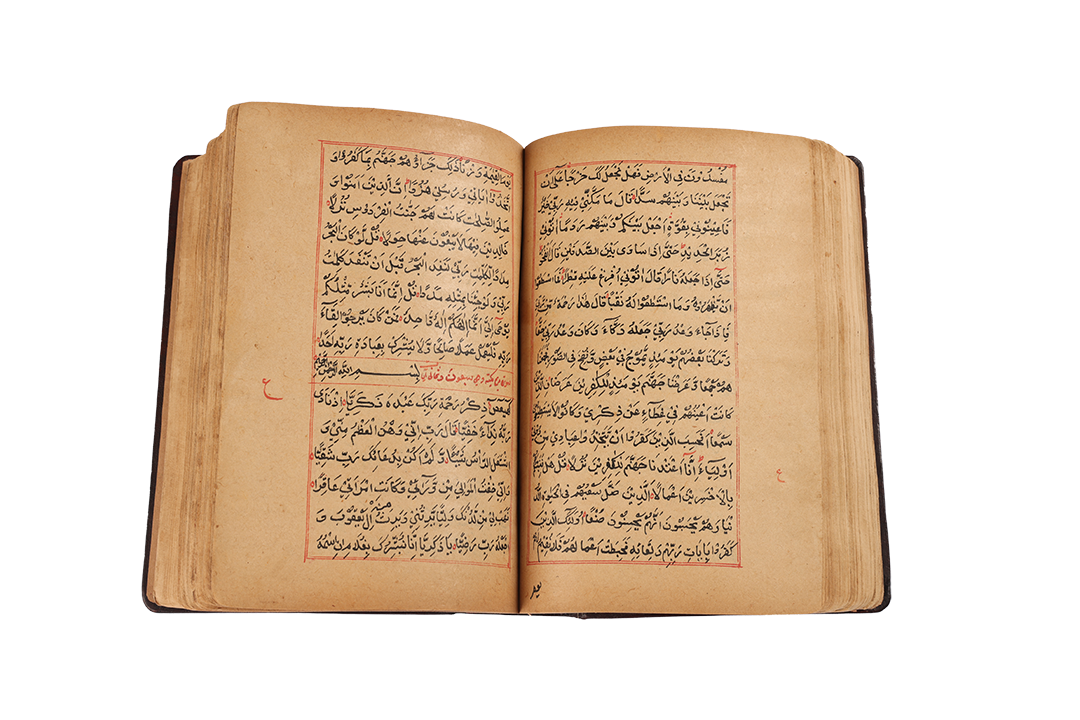 مفسدون في الارض فهل نجعل لك خرجا على ان
تجعل بيننا وبينهم سدا قال ما مكنى فيه ربي خير
فاعينوني بقوة اجعل بينكم وبينهم ردما اتوني
زبر الحديد حتى اذا ساوى بين الصدفين قال انفخوا
حتى اذا جعله نارا قال اتوني افرغ عليه قطرا فما اسطاعوا
ان يظهروه وما استطاعوا له نقبا قال هذا رحمة من ربي
فاذا جاء وعد ربي جعله دكاء وكان وعد ربي حقا
وتركنا بعضهم يومئذ يموج في بعض ونفخ في الصور فجمعنا
هم جمعا وعرضنا جهنم يومئذ للكفرين عرضا الذين
كانت اعينهم في غطاء عن ذكري وكانوا لا يستطيعون
سمعا افحسب الذين كفروا ان يتخذوا عبادي من دوني
اولياء انا اعتدنا جهنم للكفرين نزلا قل هل ننبئكم
بالاخسرين اعمالا الذين ضل سعيهم في الحيوة الد
نيا وهم يحسبون انهم يحسنون صنعا اولئك الذين
كفروا بايات ربهم ولقائه فحبطت اعمالهم فلا نقيم لهم
ع
يوم القيمة وزنا ذلك جزاؤهم جهنم بما كفروا و
تخذوا اياتي ورسلي هزوا ان الذين امنوا و
عملوا الصلحت كانت لهم جنت الفردوس نزلا
خالدين فيها لا يبغون عنها حولا قل لو كان البحر
مدادا لكلمت ربي لنفد البحر قبل ان تنفد كلمت
ربي ولو جئنا بمثله مددا قل انما انا بشر مثلكم
يوحى الي انما الهكم اله واحد فمن كان يرجو القاء
ربه فليعمل عملا صالحا ولا يشرك بعبادة ربه احدا
بسم الله الرحمن الرحيم
كهيعص ذكر رحمة ربك عبده زكريا اذ نادى
ربه نداء خفيا قال رب اني وهن العظم مني و
اشتعل الراس شيبا ولم اكن بدعائك رب شقيا
واني خفت الموالي من ورائي وكانت امراتي عاقرا
فهب لي من لدنك وليا يرثني ويرث من ال يعقوب و
اجعله رب رضيا يا زكريا انا نبشرك بغلام ن اسمه
ع